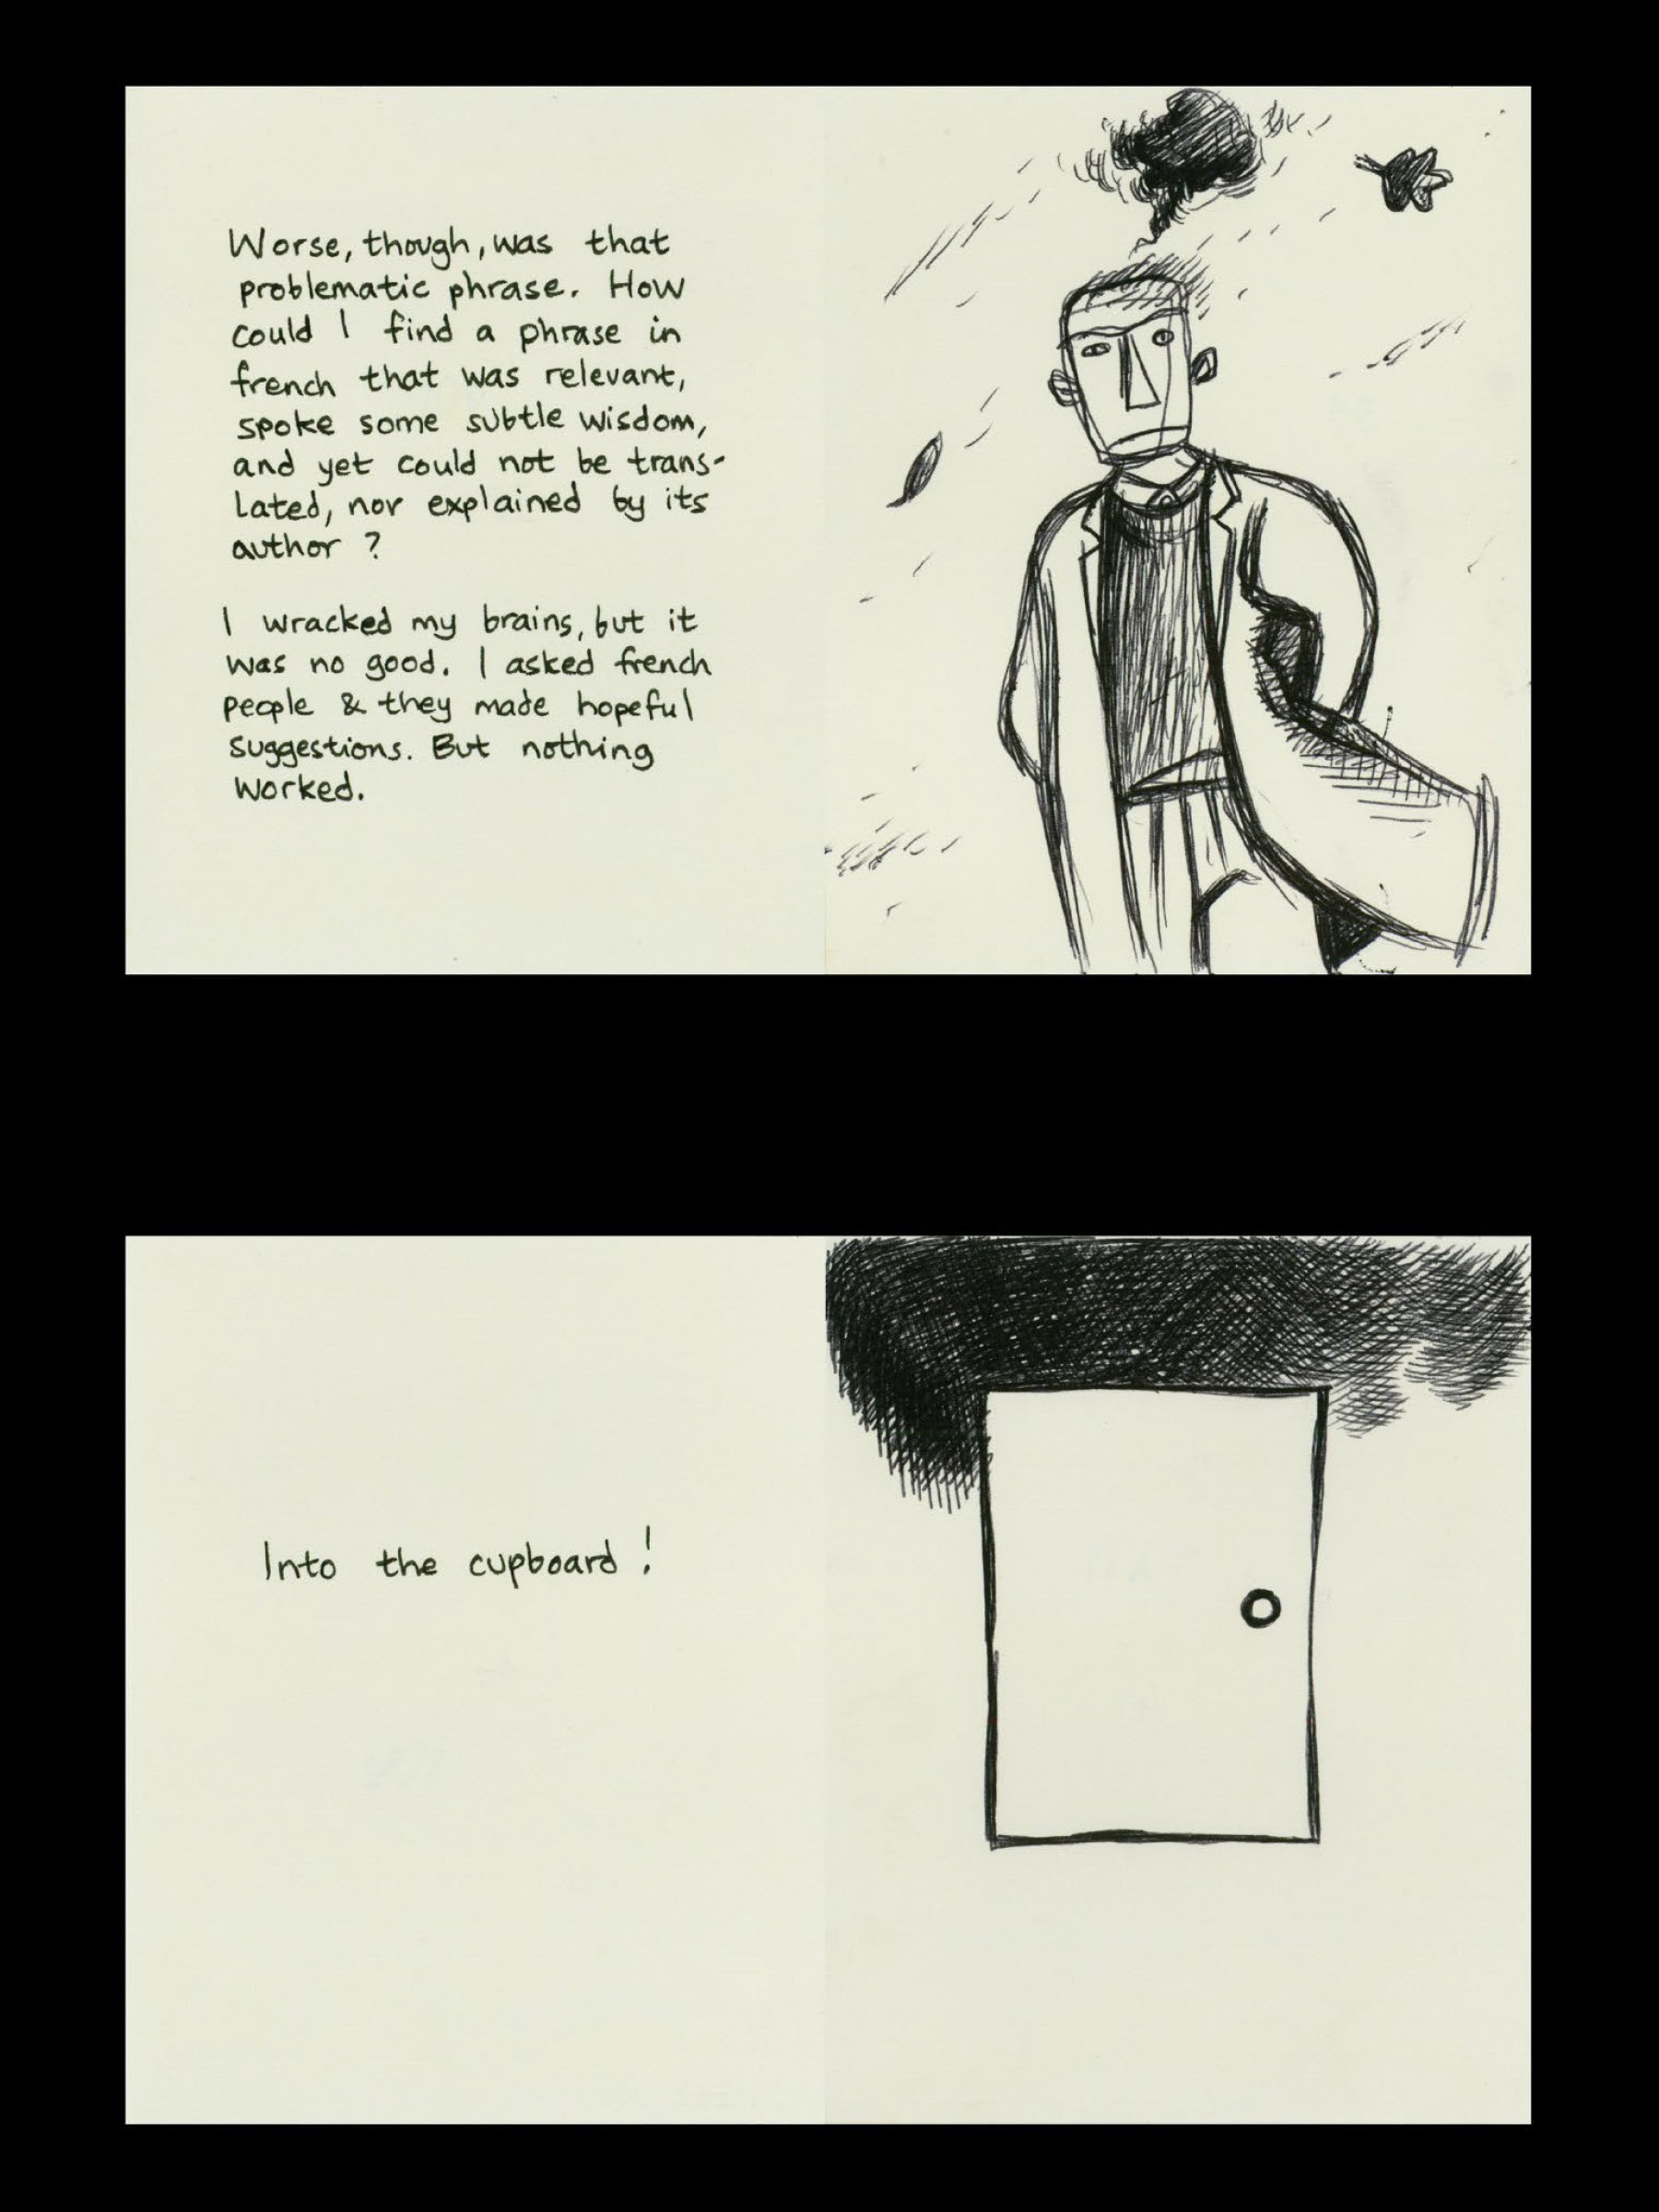 Worse, though, was that
problematic phrase. How
could I find a phrase in
french that was relevant,
spoke some subtle wisdom,
and yet could not be trans-
lated, nor explained by its
author ?
I wracked my brains, but it
was no good. I asked french
people & they made hopeful
suggestions. But nothing
worked.
Into the cupboard !